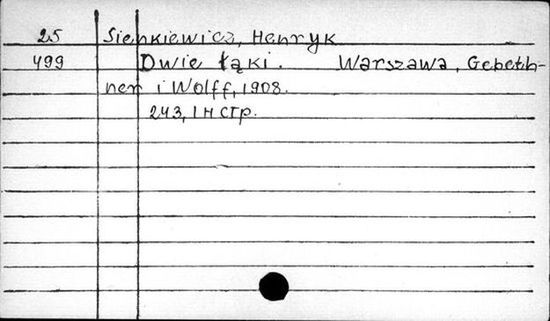 25 Sienkiewicz, Henryk
499 Dwie łąki. Warszawa, Gebeth-
ner i Wolff, 1908.
243, 1 н стр.